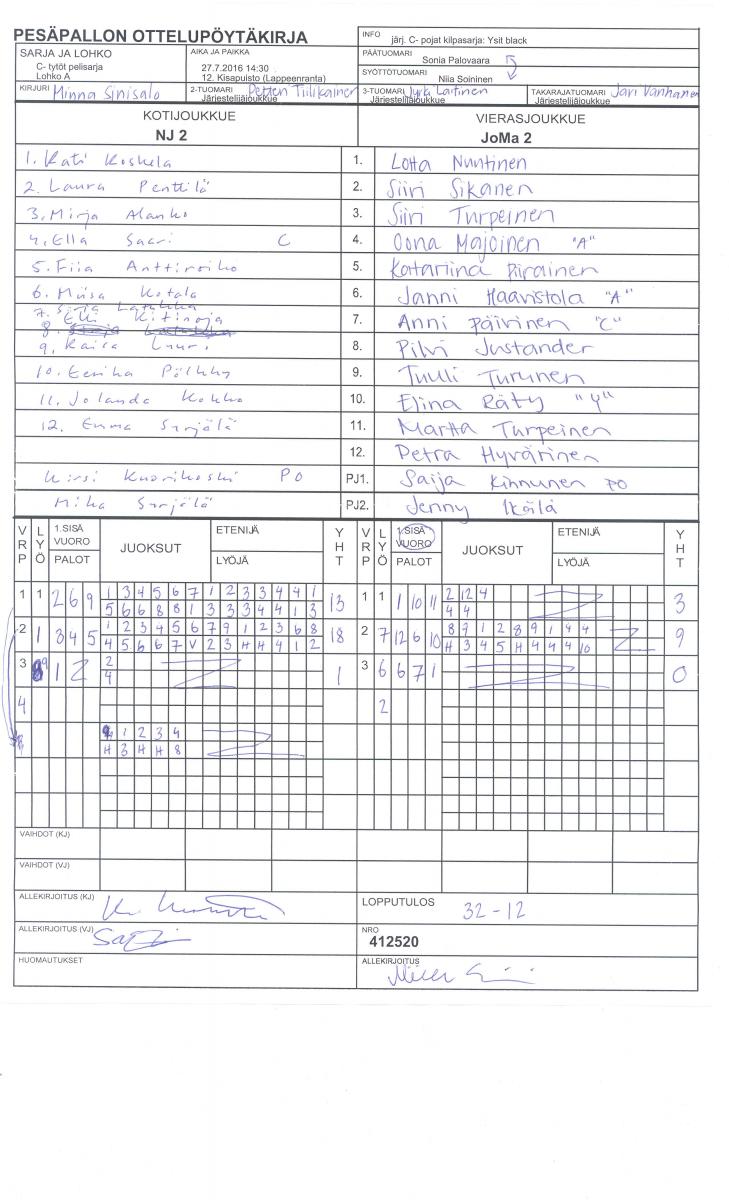 PESÄPALLON OTTELUPÖYTÄKIRJA
INFO järj. C- pojat kilpasarja: Ysit black
SARJA JA LOHKO
C- tytöt pelisarja
Lohko A
AIKA JA PAIKKA
27.7.2016 14:30
12. Kisapuisto (Lappeenranta)
PÄÄTUOMARI
Sonia Palovaara
SYÖTTÖTUOMARI
Niia Soininen
KIRJURI Minna Sinisalo
2-TUOMARI Petteri Tiilikainen
Järjestelijäjoukkue
3-TUOMARI Jyrki Laitinen
Järjestelijäjoukkue
TAKARAJATUOMARI Jari Vanhanen
Järjestelijäjoukkue
KOTIJOUKKUE
NJ 2
VIERASJOUKKUE
JoMa 2
1. Kati Koskela 1. Lotta Nuutinen
2. Laura Penttilä 2. Siiri Sikanen
3. Mirja Alanko 3. Siiri Turpeinen
4. Ella Saari C 4. Oona Majoinen "A"
5. Fiia Anttiroiko 5. Katariina Piirainen
6. Miisa Kotala 6. Janni Haavistola "A"
7. Sirja Latukka
8. Elli Kitinoja 7. Anni Päivinen "C"
9. Kaisa Lauri 8. Pilvi Justander
10. Eerika Pölkky 9. Tuuli Turunen
11. Jolanda Kokko 10. Elina Räty "Y"
12. Emma Sarjälä 11. Martta Turpeinen
12. Petra Hyvärinen
Kirsi Kuorikoski PO PJ1. Saija Kinnunen PO
Mika Sarjälä PJ2. Jenny Ikälä
VRP LYÖ 1.SISÄ VUORO PALOT JUOKSUT ETENIJÄ LYÖJÄ YHT VRP LYÖ 1.SISÄ VUORO PALOT JUOKSUT ETENIJÄ LYÖJÄ YHT
1 1 2 6 9 1 3 4 5 6 7 1 2 3 3 4 4 1 13 1 1 1 10 11 2 12 4 3
5 6 6 8 8 1 3 3 3 4 4 1 3 4 4
2 1 3 4 5 1 2 3 4 5 6 7 9 1 2 3 6 8 18 2 7 12 6 10 8 7 1 2 8 9 1 4 4 9
4 5 6 6 7 V 2 3 H H 4 1 2 H 3 4 5 H 4 4 4 10
3 9 1 2 2 1 3 6 6 7 1 0
4
4 2
1 2 3 4
H 3 H H 8
VAIHDOT (KJ)
VAIHDOT (VJ)
ALLEKIRJOITUS (KJ)
LOPPUTULOS 32-12
ALLEKIRJOITUS (VJ)
NRO
412520
HUOMAUTUKSET
ALLEKIRJOITUS